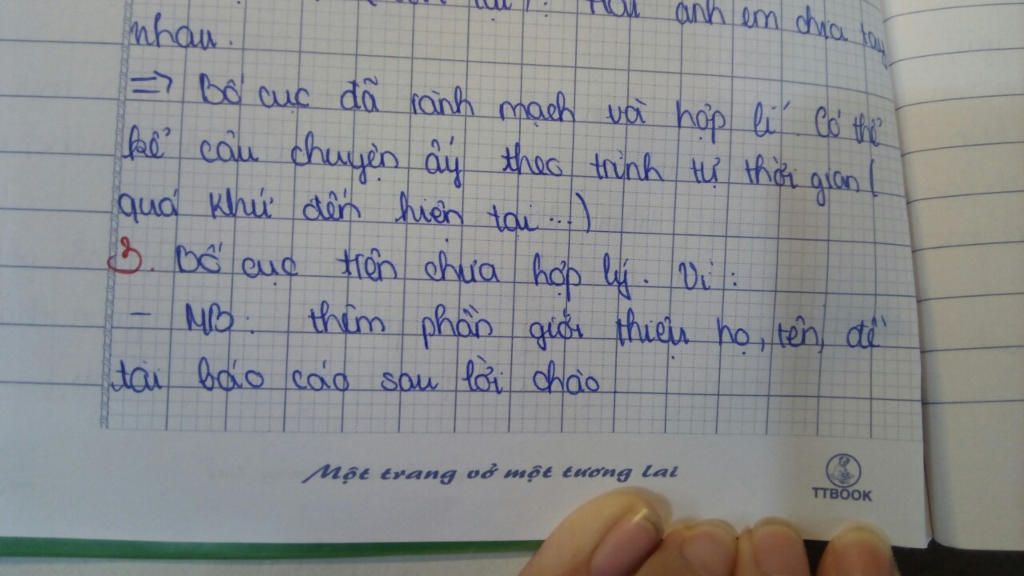 tại): Hai anh em chia tay
nhau.
=> Bố cục đã rành mạch và hợp lí Có thể
kể câu chuyện ấy theo trình tự thời gian (
quá khứ đến hiện tại...)
3. Bố cục trên chưa hợp lý. Vì:
- MB: thêm phần giới thiệu họ, tên, đề
tài báo cáo sau lời chào
Một trang vở một tương lai
TTBOOK